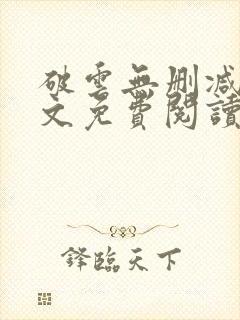 破雲無刪減
文免費閱讀
鋒臨天下